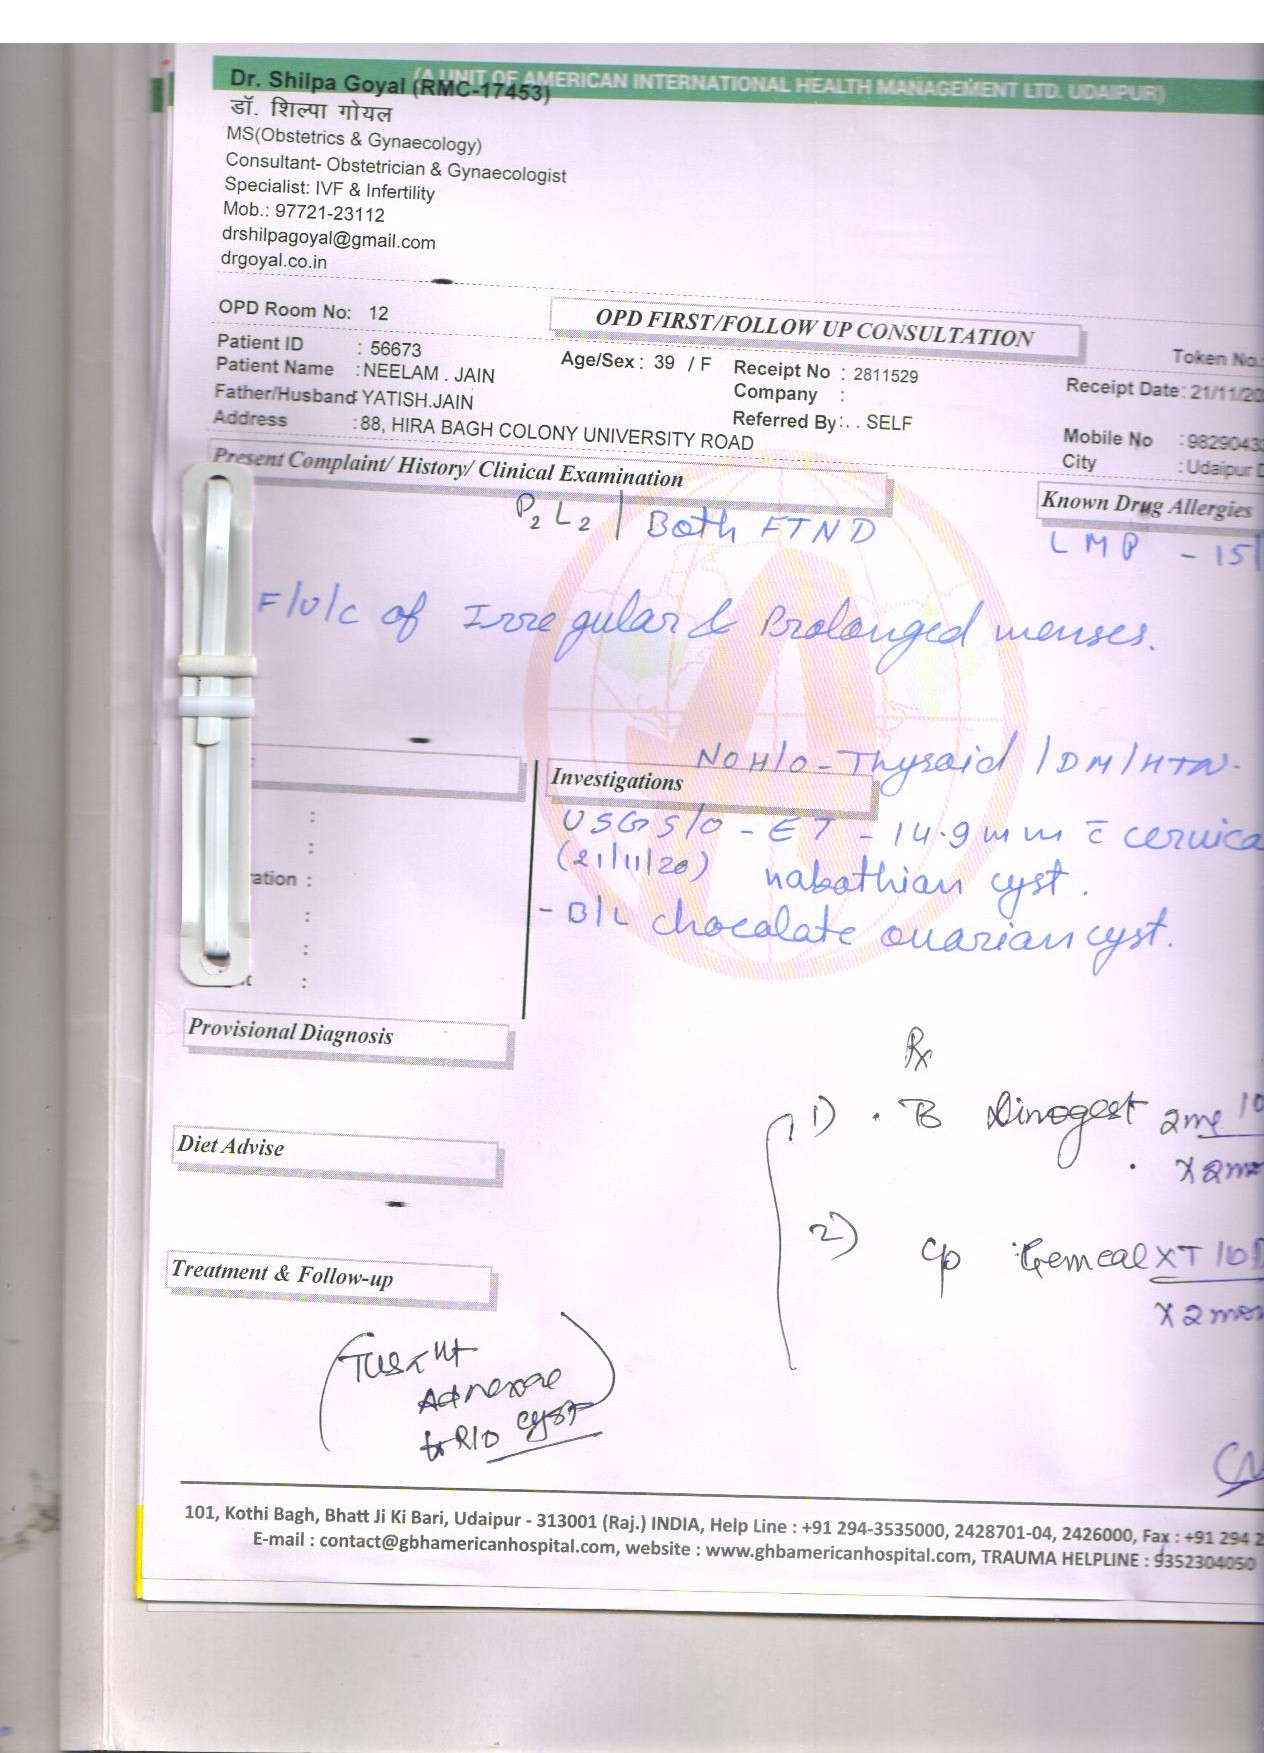 (A UNIT OF AMERICAN INTERNATIONAL HEALTH MANAGEMENT LTD. UDAIPUR)
Dr. Shilpa Goyal (RMC-17453)
डॉ. शिल्पा गोयल
MS(Obstetrics & Gynaecology)
Consultant- Obstetrician & Gynaecologist
Specialist: IVF & Infertility
Mob.: 97721-23112
drshilpagoyal@gmail.com
drgoyal.co.in
OPD Room No: 12
OPD FIRST/FOLLOW UP CONSULTATION
Token No.
Patient ID : 56673
Age/Sex : 39 / F Receipt No : 2811529
Receipt Date: 21/11/20
Patient Name :NEELAM . JAIN
Company :
Father/Husband: YATISH.JAIN
Referred By:. . SELF
Mobile No :9829043
Address :88, HIRA BAGH COLONY UNIVERSITY ROAD
City :Udaipur D
Present Complaint/ History/ Clinical Examination
Known Drug Allergies
P2 L2 | Both FTND
LMP - 15/
F/U/C of Irregular & Prolonged menses.
NO H/O - Thyroid /DM/HTN.
Investigations
:
USG S/O - ET - 14.9mm c̄ cervica
:
(21/11/20) nabothian cyst.
ation :
- B/L chocalate ovarian cyst.
:
:
:
Provisional Diagnosis
Rx
1) . Dinogest 2mg 10
x 2mo
Diet Advise
2) Gemcal XT 10
x 2mon
Treatment & Follow-up
Adnexae
R/O cyst
101, Kothi Bagh, Bhatt Ji Ki Bari, Udaipur - 313001 (Raj.) INDIA, Help Line : +91 294-3535000, 2428701-04, 2426000, Fax : +91 294 2
E-mail : contact@gbhamericanhospital.com, website : www.ghbamericanhospital.com, TRAUMA HELPLINE : 9352304050